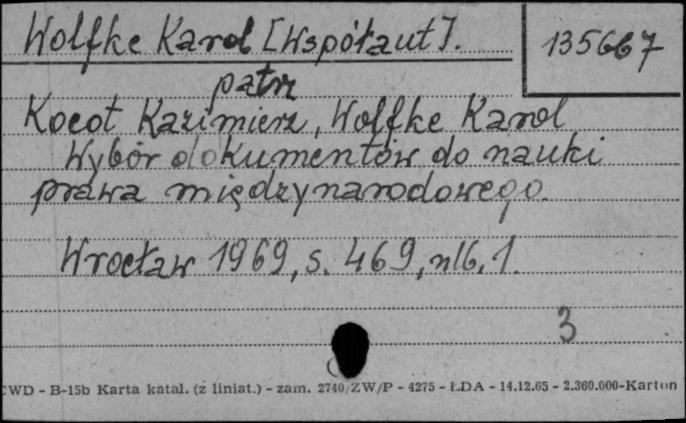 Wolfke Karol [Współaut].
135667
patrz
Kocot Kazimierz, Wolfke Karol
Wybór dokumentów do nauki
prawa międzynarodowego.
Wrocław 1969, s. 469, nlb. 1.
3
CWD - B-15b Karta katal. (z liniat.) - zam. 2740/ZW/P - 4275 - ŁDA - 14.12.65 - 2.360.000-Karton